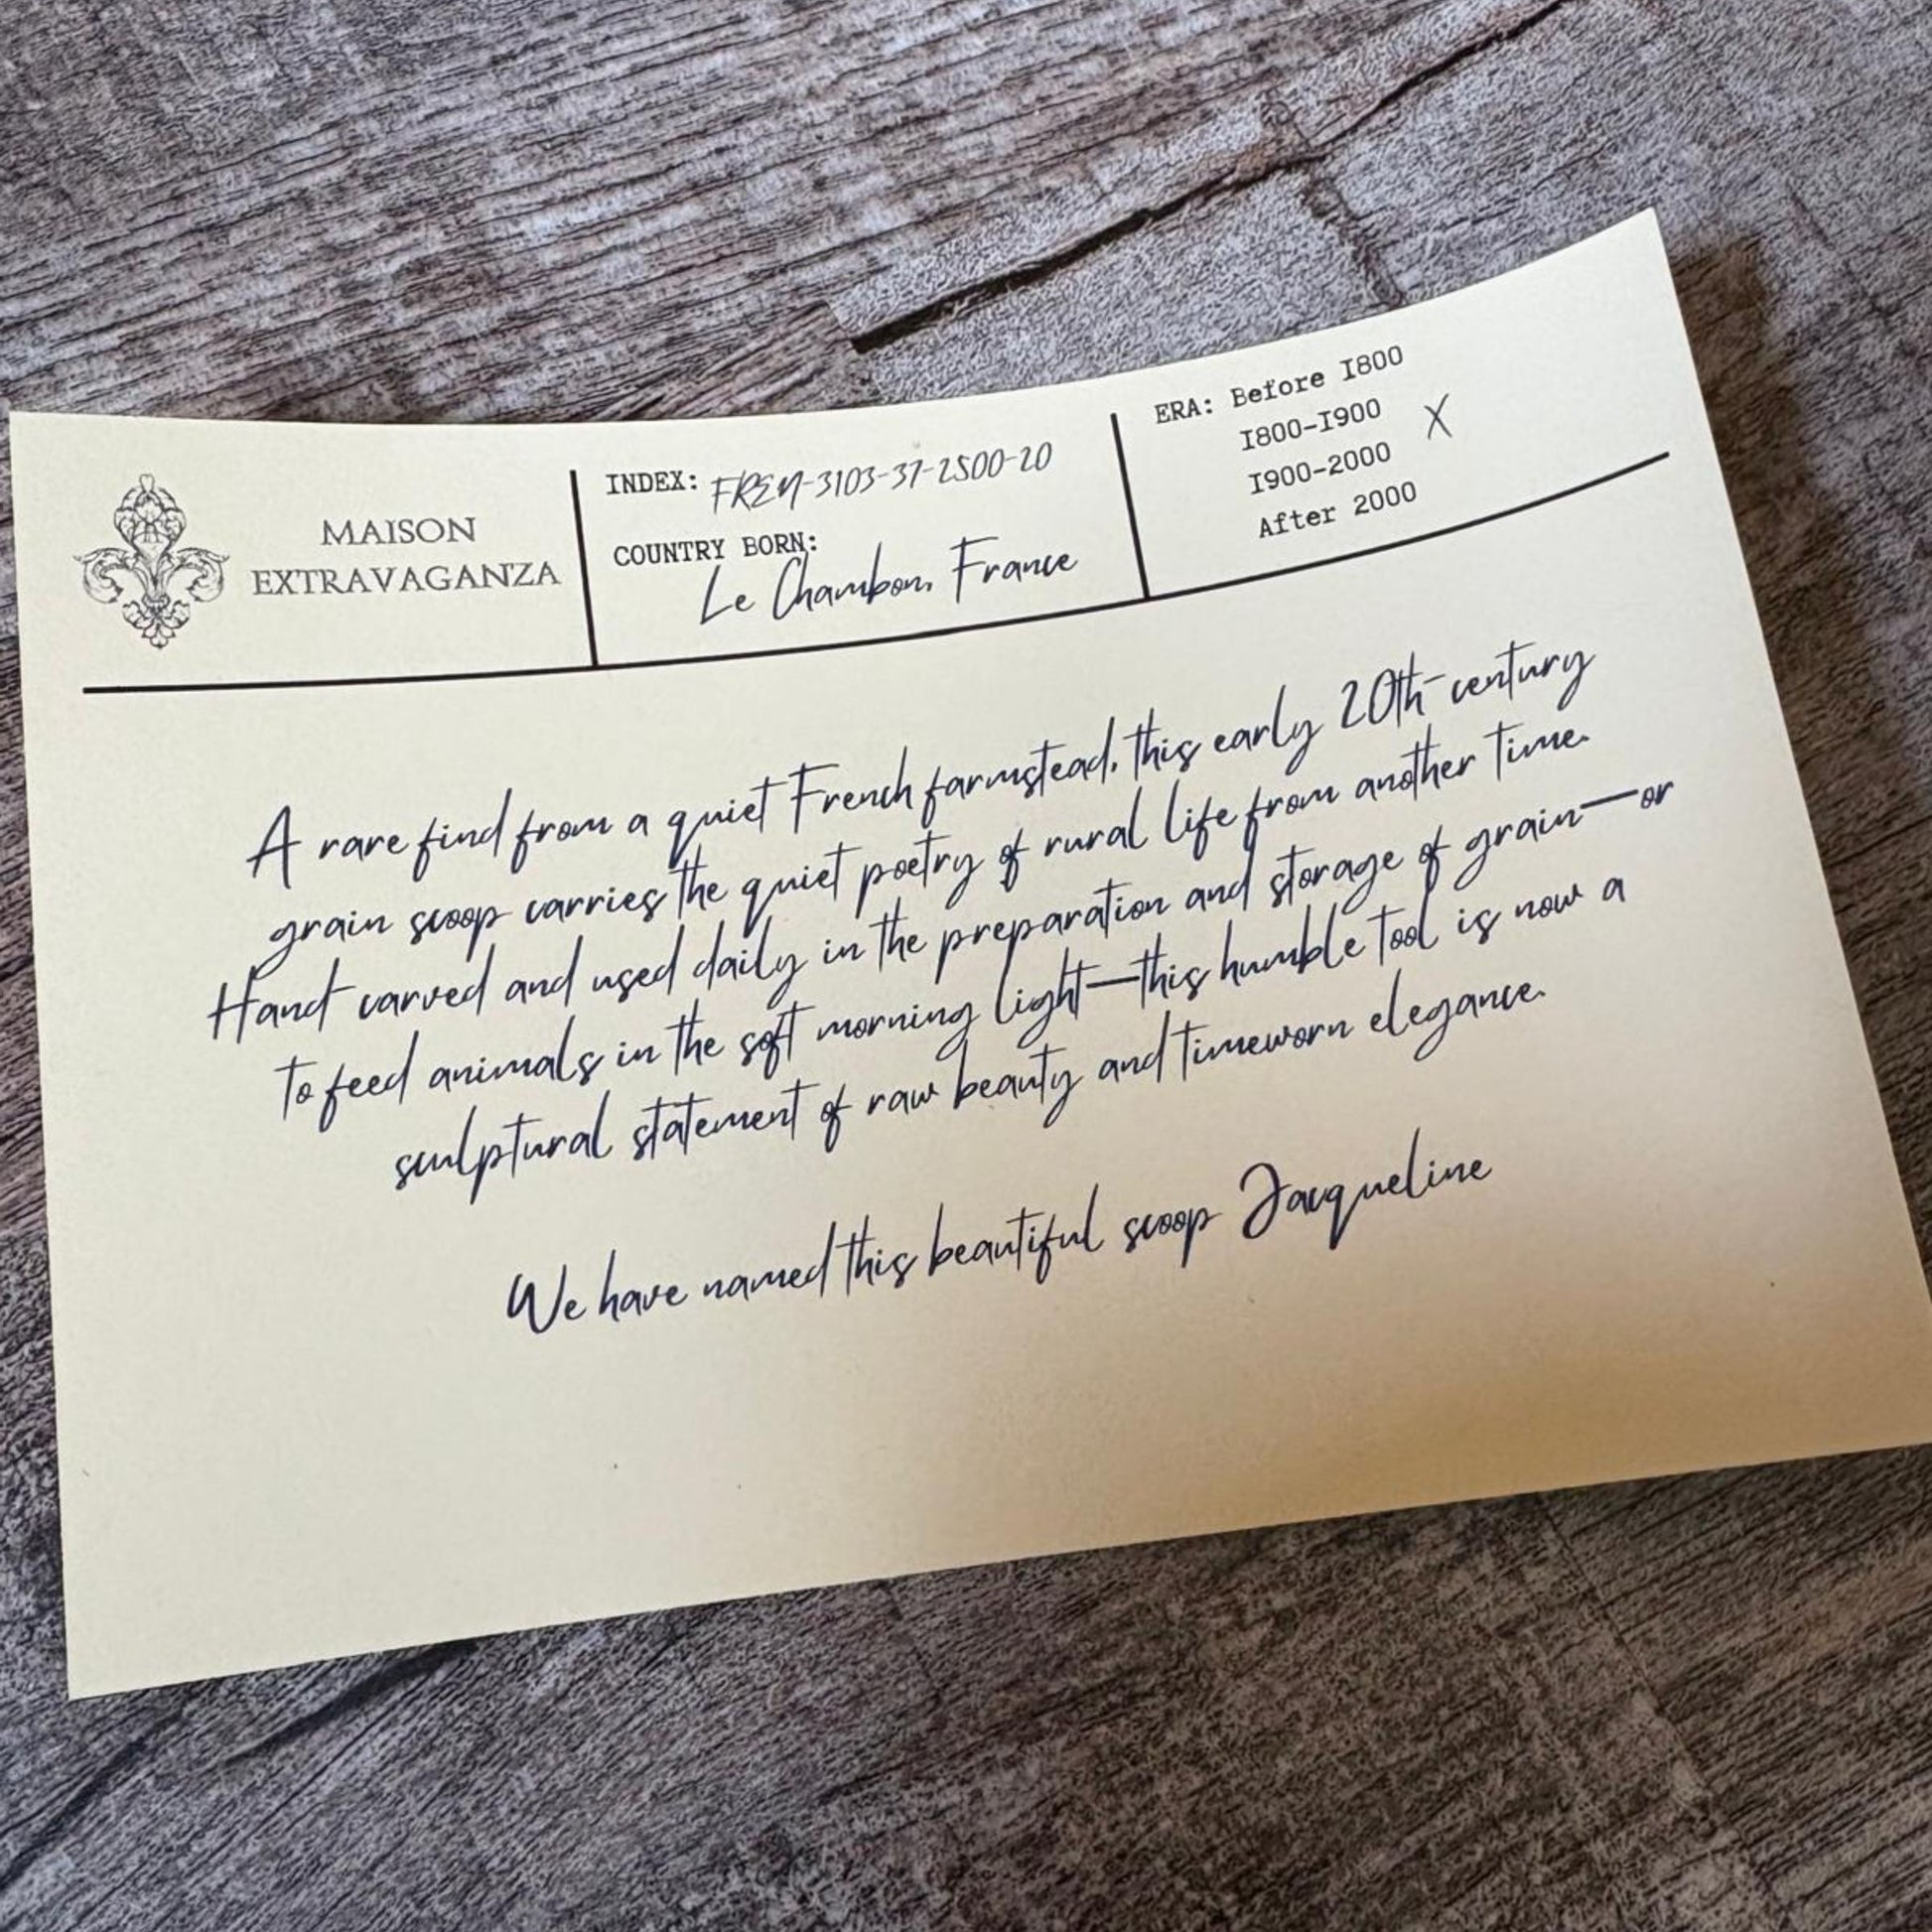 MAISON
EXTRAVAGANZA
INDEX: FREN-3103-37-2500-20
COUNTRY BORN:
Le Chambon, France
ERA: Before 1800
1800-1900
1900-2000 X
After 2000
A rare find from a quiet French farmstead, this early 20th-century
grain scoop carries the quiet poetry of rural life from another time.
Hand-carved and used daily in the preparation and storage of grain—or
to feed animals in the soft morning light—this humble tool is now a
sculptural statement of raw beauty and timeworn elegance.
We have named this beautiful scoop Jacqueline